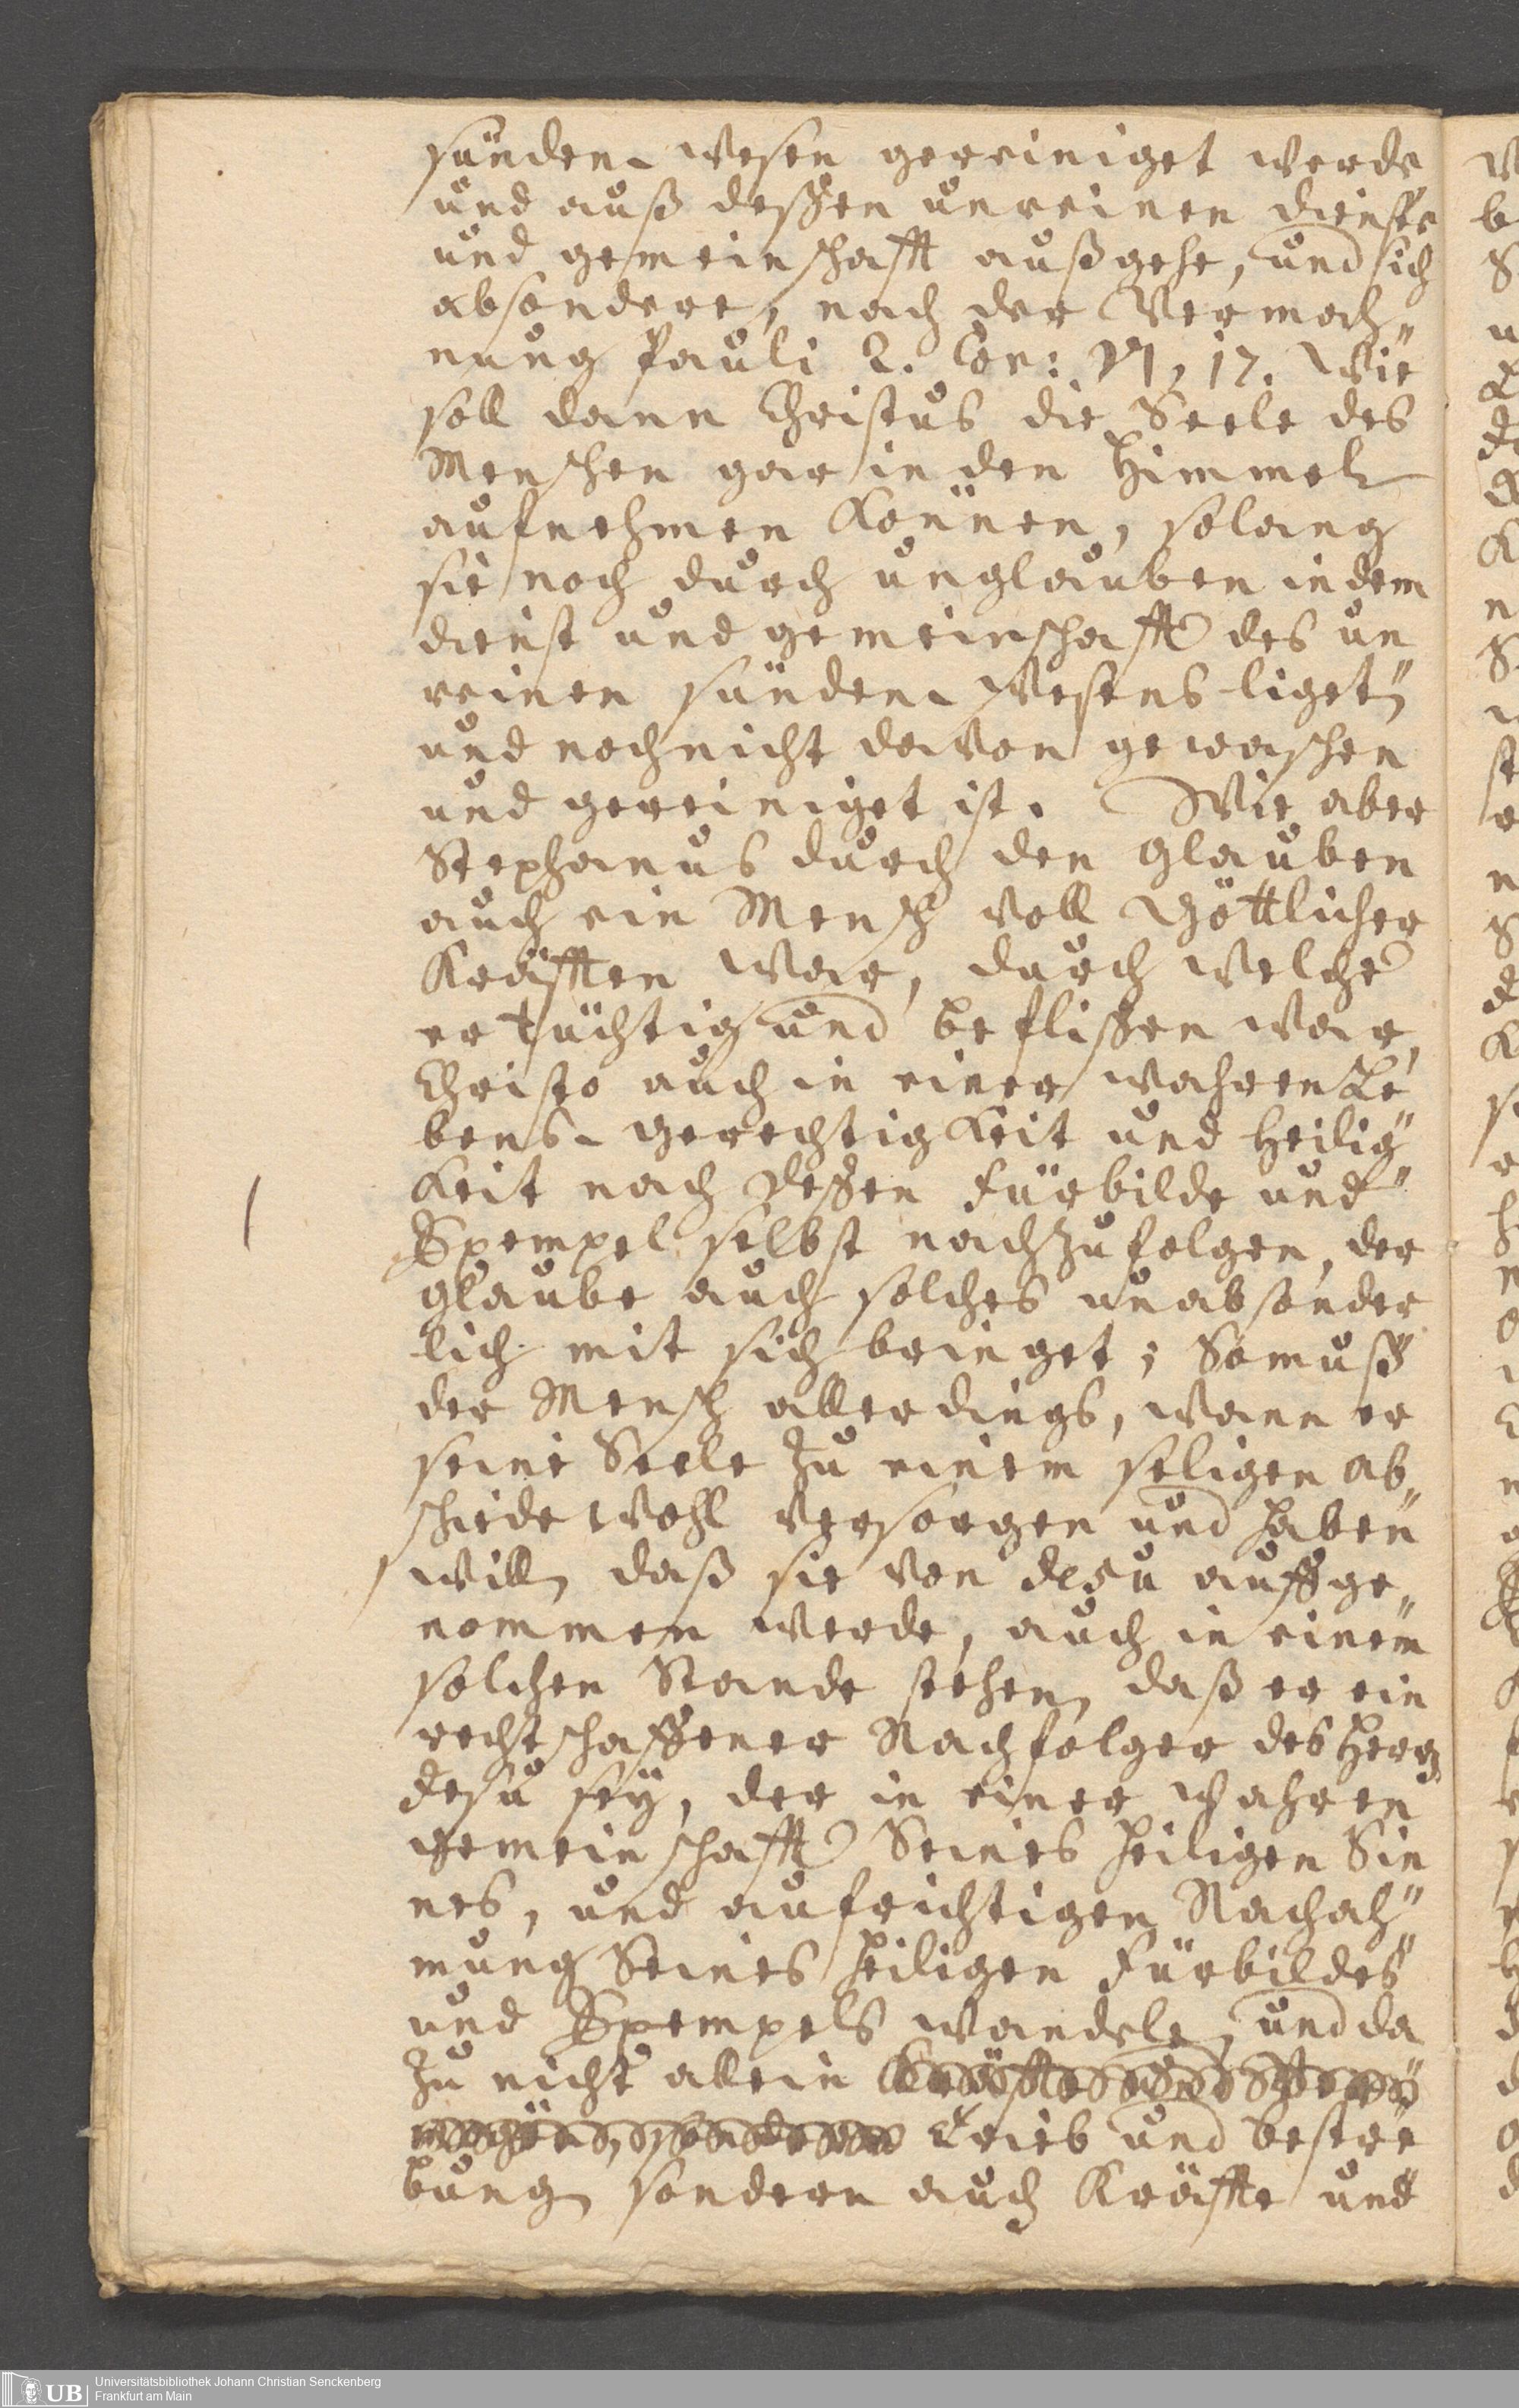 sünden-wesen gereiniget werde
und auß deßen unreinen dienste
und gemeinschafft außgehe, und sich
absondere, nach der Vermah„
nung Pauli 2. Cor: VI, 17. Wie
soll dann Christus die Seele des
Menschen gar in den Himmel
aufnehmen können, solang
sie noch durch unglauben in dem
dienst und gemeinschafft des un
reinen sünden-Wesens liget„
und noch nicht davon gewaschen
und gereiniget ist. Wie aber
Stephanus durch den glauben
auch ein Mensch voll Göttlicher
Kräfften war, durch welche
er tüchtig und beflißen war,
Christo auch in einer wahren Le
bens-gerechtigkeit und Heilig„
keit nach deßen Fürbilde und
Exempel selbst nachzufolgen, der
glaube auch solches unabsonder
lich mit sich bringet; So muß
der Mensch allerdings, wann er
seine Seele zu einem seligen ab„
schiede wohl versorgen und haben
will, daß sie von Jesu auffge„
nommen werde, auch in einem
solchen Stande stehen, daß er ein
rechtschaffener Nachfolger des Herrn
Jesu seÿ, der in einer wahren
gemeinschafft Seines heiligen Sin
nes, und aufrichtigen Nachah„
mung Seines heiligen Fürbildes
und Exempels wandele, und da
zu nicht allein
Trieb und bestre
bung, sondern auch Kräffte und
Universitätsbibliothek Johann Christian Senckenberg
UB Frankfurt am Main